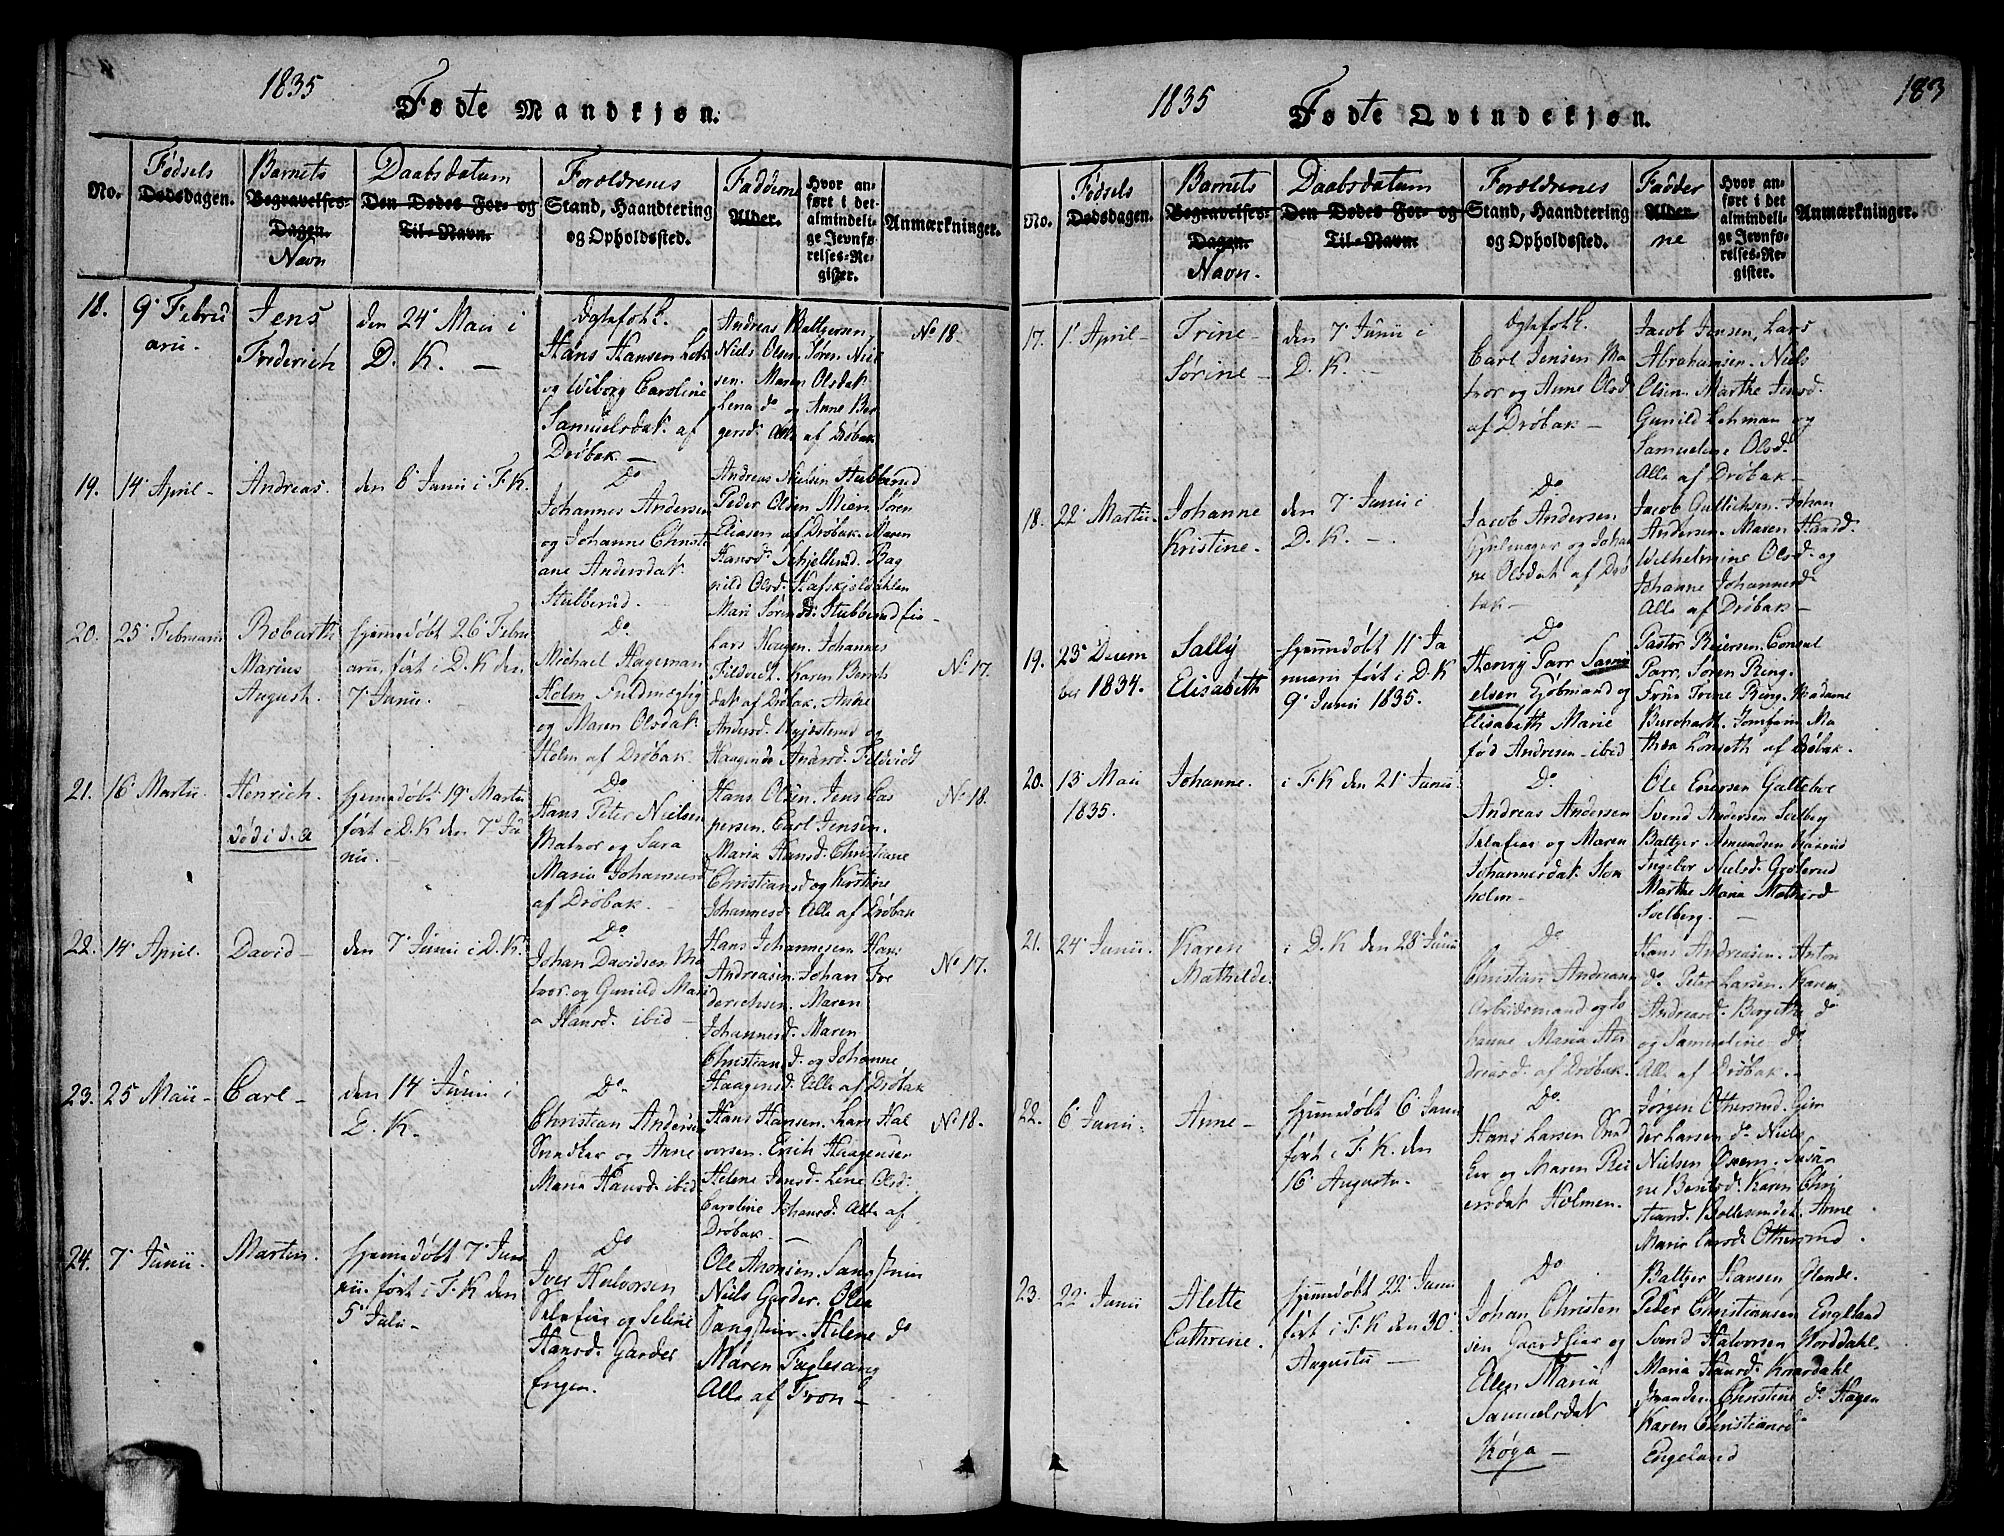 1835
Fødte Mandkjøn.
No.
Fødsels
Dødsdagen.
Barnets
Begravelses-
Dagen.
Navn
Daabsdatum
Den Dødes For- og
Til-Navn.
Forældrenes
Stand, Haandtering
og Opholdssted.
Fadderne
Alder.
Hvor an-
ført i det
almindeli-
ge Jevnfø-
relses-Re-
gister.
Anmærkninger.
18.
9de Febru
arii.
Jens
Friderich
den 24de Maii i
D. K. —
Ægtefolk.
Hans Hansen
og Wiborg Caroline
Samuelsdat. af
Drøbak —
Andreas Baltzersen
Niels Olsen. Søren Niel
sen. Maren Olsdat
Lena do og Anne Ber
gersd. Alle af Drøbak
No 18.
19.
14de April —
Andreas.
den 8de Junii i F. K.
Do
Johannes Andersen
og Johanne Christi
ane Andersdat.
Stubberud.
Andreas Nielsen Stubberud
Peder Olsen Mien. Søren
Eliasen af Drøbak. Maren
Hansd. Skjellerud. Rag
nild Olsd. Kafskjeldahlen
Mari Sørensd. Stubberud
20.
25de Februarii
Robarth
Marius
August.
hjemmedøbt 26de Febru
arii, ført i D. K den
7de Junii.
Do
Michael Hageman
Holm Fuldmægtig
og Maren Olsdat
Holm af Drøbak.
Lars Haagen. Johannes
Fildvedt. Karen Bernts
dat af Drøbak. Anne
Andersd.
Haagene Andersd. Fildvedt
No 17.
21.
16de Martii.
Henrich.
død i d. A
hjemmedøbt 19de Martii
ført i D. K den 7de Ju
nii.
Do
Hans Peter Nielsen
Matros og Sara
Maria Johannesd
af Drøbak.
Hans Olsen. Jens Cas
persen. Carl Jensen.
Maria Hansd. Christiane
Christiansd og Kirstine
Johannesd. Alle af Drøbak
No 18.
22.
14de April.
David —
den 7de Junii i D. K.
Do
Johan Davidsen Ma
tros og Gunild Mari
a Hansd. ibid —
Hans Johannesen. Hans
Andreasen. Johan Fre
derichsen. Maren
Johannesd. Maren
Christiansd. og Johanne
Haagensd. Alle af Drøbak
No 17.
23.
25 Maii —
Carl —
den 14de Junii i
D. K.
Do
Christian Andersen
Snedker og Anne
Maria Hansd. ibid
Hans Hansen. Lars Hal
vorsen. Erich Haagensen
Helene Jensd. Line Olsd.
Caroline Johansd. Alle af
Drøbak —
No 18.
24.
7de Junii
Martin.
hjemmedøbt 7de Ju
nii. ført i F. K den
5te Juli —
Do
Iver Halvorsen
og Seline
Hansd. Garder
Engen.
Ole
Niels Garder. Olea
Helene do
Maren Fuglesang
Alle af Fron —
1835
Fødte Qvindekjøn.
183
No.
Fødsels
Dødsdagen.
Barnets
Begravelses-
Dagen.
Navn.
Daabsdatum
Den Dødes For- og
Til-Navn.
Forældrenes
Stand, Haandtering
og Opholdssted.
Fadder
Alder.
ne
Hvor an-
ført i det
almindeli-
ge Jevnfø-
relses-Re-
gister.
Anmærkninger.
17.
1ste April —
Trine —
Sørine —
den 7de Junii i
D. K. —
Ægtefolk.
Carl Jensen Ma
tros og Anne Olsd
af Drøbak —
Jacob Jensen, Lars
Abrahamsen. Niels
Olsen. Marthe Jensd.
Gunild Lehman og
Samueline Olsd.
Alle af Drøbak —
18.
22de Martii.
Johanne
Kristine.
den 7de Junii i
D. K. —
Do
Jacob Andersen
og Johan
ne Olsdat af Drø
bak —
Jacob Gullichsen. Johan
Andersen. Maren Haard.
Wilhelmine Olsd. og
Johanne Johannesd.
Alle af Drøbak —
19.
23de Decem
ber 1834.
Sally
Elisabeth
hjemmedøbt 11te Ja
nuarii ført i D. K
9de Junii 1835.
Do
Henry Parr Samu
elsen Kjøbmand og
Elisabeth Marie
fød Andresen ibid
Pastor Reiersen. Consul
Parr. Søren Ring.
Frue Trine Ring. Madame
Burchardt. Jomfrue Ma
thea Lonseth af Drøbak.
20.
13de Maii
1835.
Johanne.
i F. K den 21de Junii
Do
Andreas Andersen
og Maren
Johannesdat. Stok
holm —
Ole Enersen Galteboe
Svend Andersen Solberg
Baltzer Amundsen
Ingebor Nielsd.
Marthe Maria Mathisd
Solberg. —
21.
24de Junii.
Karen
Mathilde.
i D. K den 28de Junii
Do
Christian Andreasen
Arbeidsmand og Jo
hanne Maria An
dreasd. af Drøbak.
Hans Andreasen. Anton
do. Peter Larsen. Karen
Andreasd. Bergethe do
og Samueline do
Alle af Drøbak. —
22.
6te Junii.
Anne —
hjemmedøbt 6te Junii
ført i F. K. den
16de Augustii.
Do
Hans Larsen Sned
ker og Maren Rei
ersdat Holmen.
Jørgen Ottersrud. Gun
der Larsen do. Niels
Nielsen Osem. Susan
ne Berntsd. Karen Chri
stiansd. Anne
Maria Larsd. Ottersrud.
23.
22de Junii
Alette
Cathrine.
hjemmedøbt 22de Junii
ført i F. K den 30te
Augustii —
Do
Johan Christen
sen Gaardfier og
Ellen Maria
Samuelsdat
Køya —
Baltzer Hansen Glende.
Peter Christiansen Engeland
Svend Halvorsen Norddahl.
Maria Hansd. Knardahl
Christine do. Hagen
Karen Christiansd
Engeland